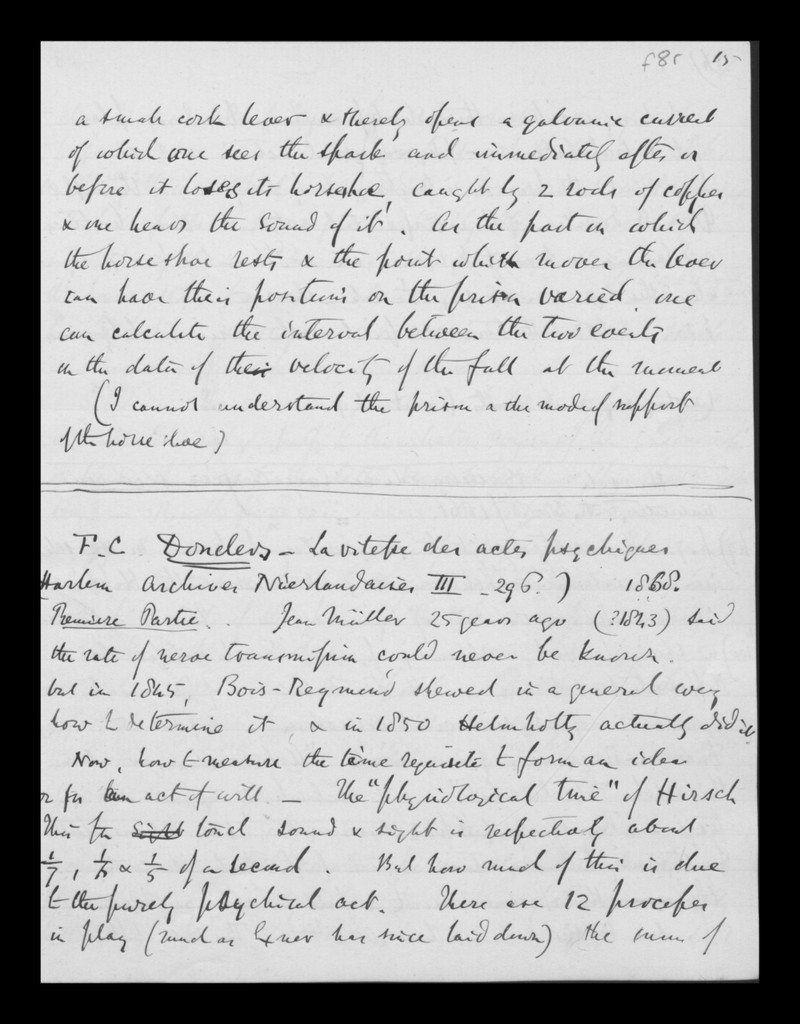 f8r 15
a small cork lever & thereby opens a galvanic current
of which one sees the spark and immediately after or
before it loses its horseshoe, caught by 2 rods of copper
& one hears the sound of it. As the part on which
the horse shoe rests & the point which moves the lever
can have their positions on the prism varied one
can calculate the interval between the two events
on the data of their velocity of the fall at the moment
(I cannot understand the prism or the mode of support
of the horse shoe)
F.C Donders – La vitesse des actes psychiques
Harlem Archives Néerlandaises III - 296.) 1868.
Première Partie. . Jean Müller 25 years ago (?1843) said
the rate of nerve transmission could never be known.
but in 1845, Bois-Reymond shewed in a general way
how to determine it, & in 1850 Helmholtz actually did it
Now, how to measure the time requisite to form an idea
or for an act of will – The "physiological time" of Hirsch
This for Sight touch sound & sight is respectively about
1/7, 1/6 & 1/5 of a second. But how much of this is due
to the purely psychical act. There are 12 processes
in play (much as Exner has since laid down) the sum of